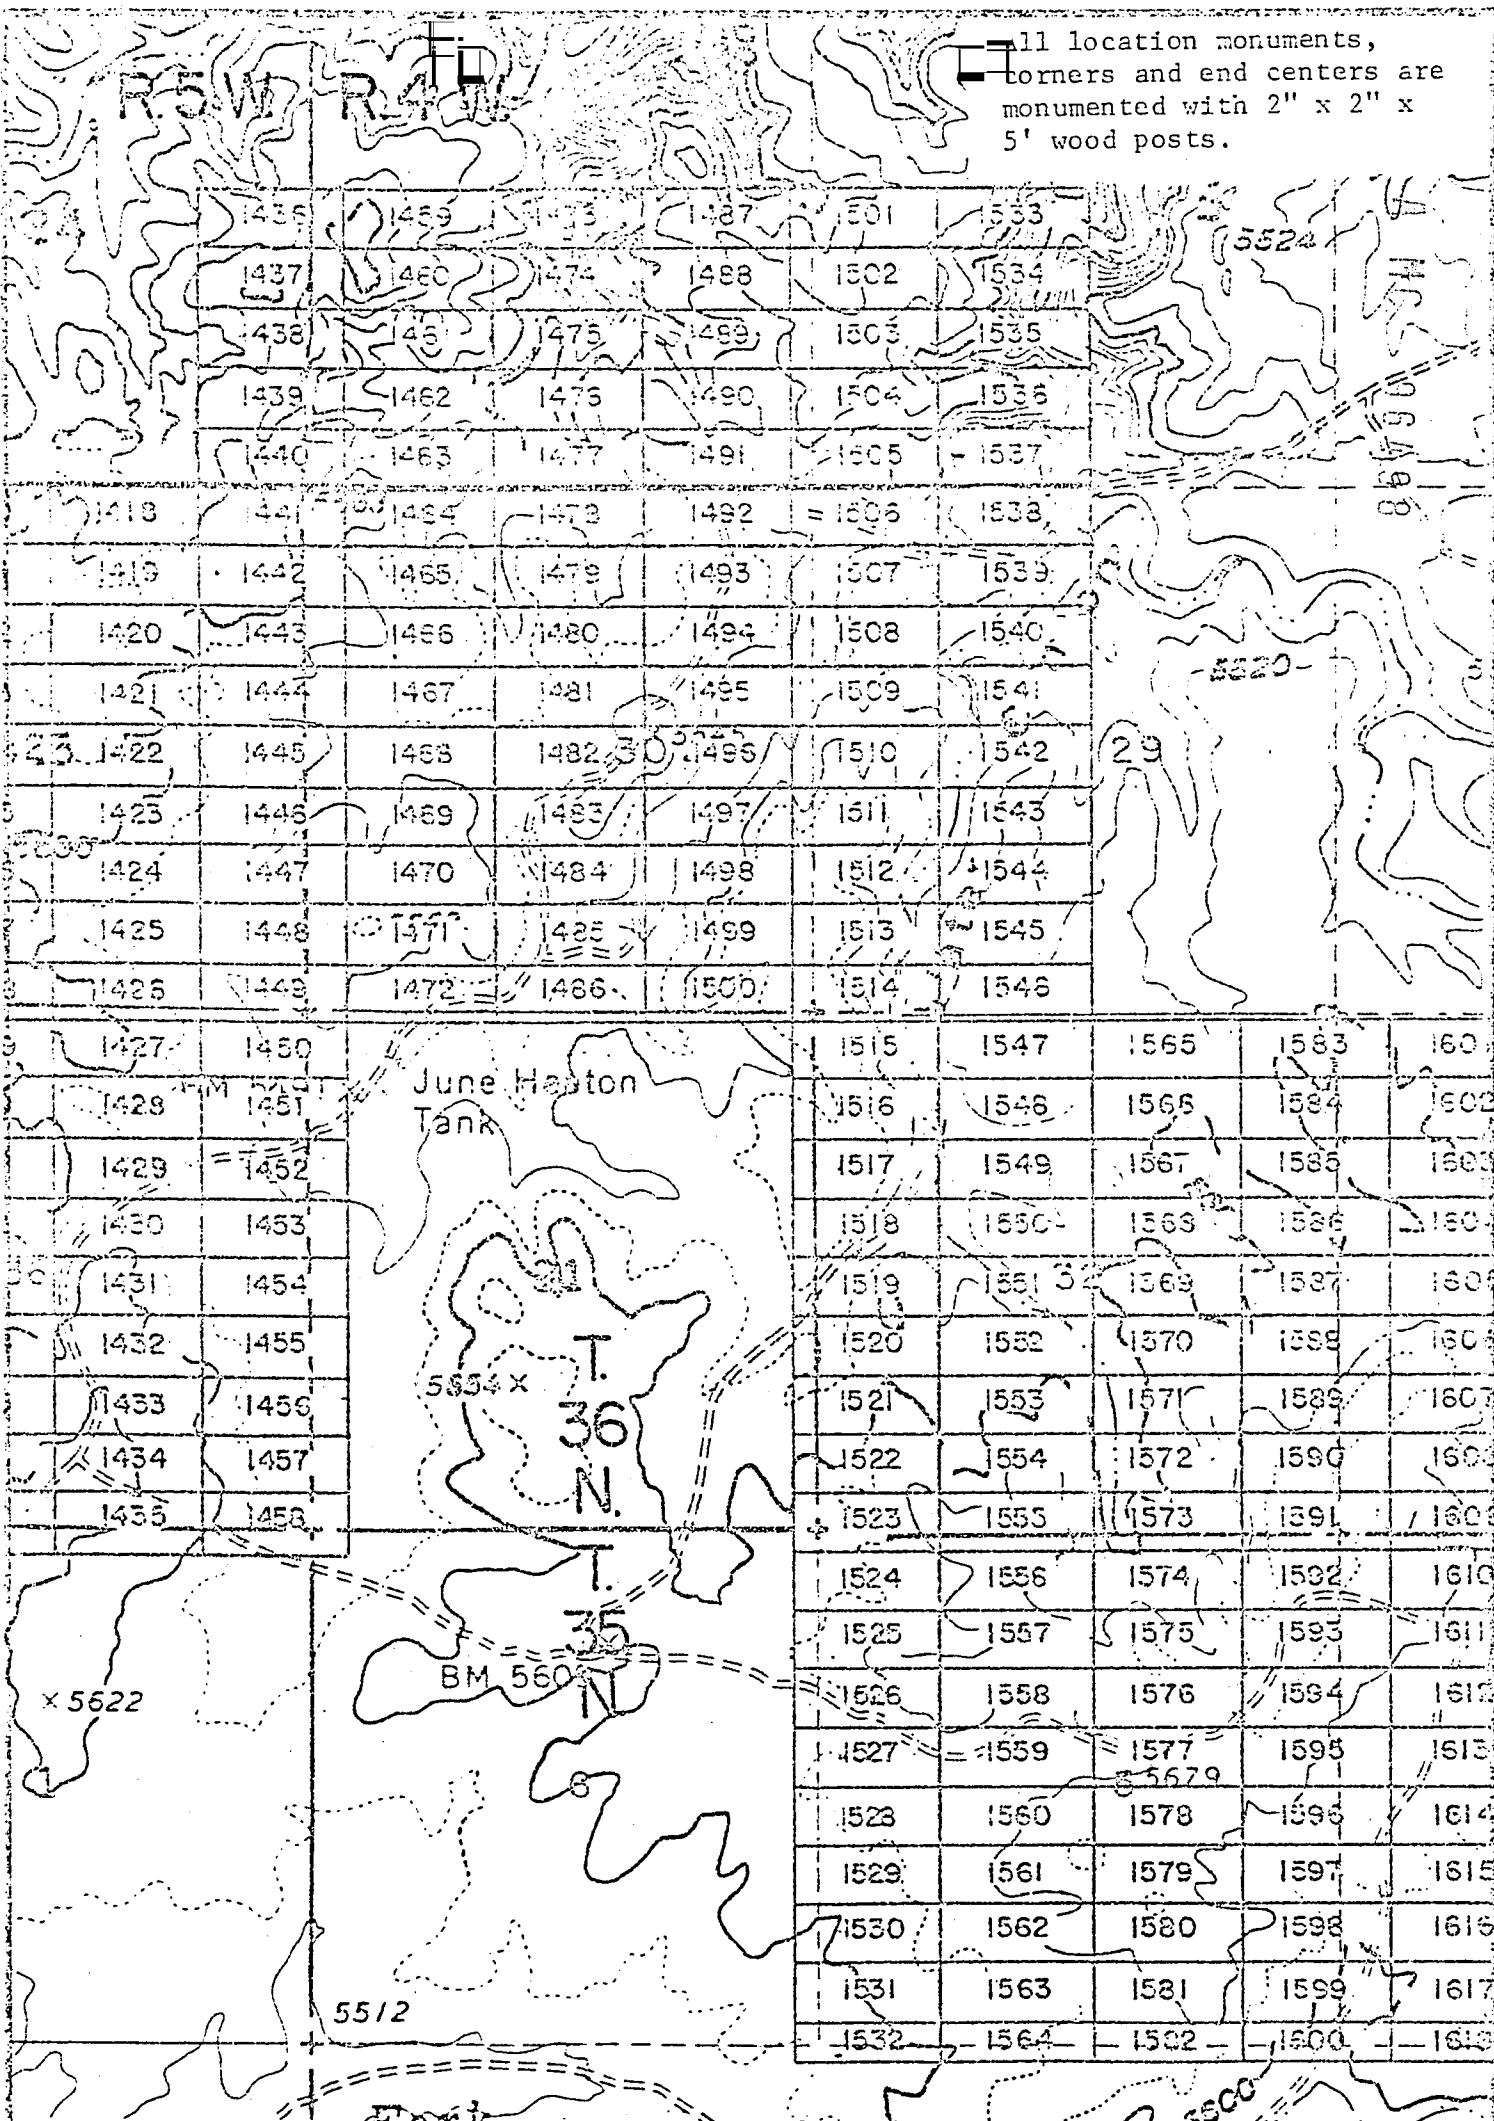 All location monuments,
corners and end centers are
monumented with 2" x 2" x
5' wood posts.
R.5W. R.4W.
1436 1459 1473 1487 1501 1533
5524
1437 1460 1474 1488 1502 1534
1438 1461 1475 1489 1503 1535
1439 1462 1476 1490 1504 1536
1440 1463 1477 1491 1505 1537
1418 1441 1464 1478 1492 1506 1538
1419 1442 1465 1479 1493 1507 1539
1420 1443 1466 1480 1494 1508 1540
5520
1421 1444 1467 1481 1495 1509 1541
1422 1445 1468 1482 30 1496 1510 1542 29
1423 1446 1469 1483 1497 1511 1543
1424 1447 1470 1484 1498 1512 1544
1425 1448 1471 1485 1499 1513 1545
1426 1449 1472 1486 1500 1514 1546
1427 1450 1515 1547 1565 1583 160
June Heaton
Tank
1428 1451 1516 1548 1566 1584 1602
1429 1452 1517 1549 1567 1585 1603
1430 1453 1518 1550 1568 1586 160
1431 1454 31 1519 1551 32 1569 1587 160
1432 1455 1520 1552 1570 1588 160
T.
36
N.
5554 ×
1433 1456 1521 1553 1571 1589 1607
1434 1457 1522 1554 1572 1590 160
1435 1458 1523 1555 1573 1591 160
T.
35
N.
1524 1556 1574 1592 1610
1525 1557 1575 1593 1611
BM 560
× 5622
1526 1558 1576 1594 1612
1527 1559 1577 1595 1613
1 6 5 5679
1528 1560 1578 1596 1614
1529 1561 1579 1597 1615
1530 1562 1580 1598 1616
1531 1563 1581 1599 1617
5512
1532 1564 1582 1600 161
5500